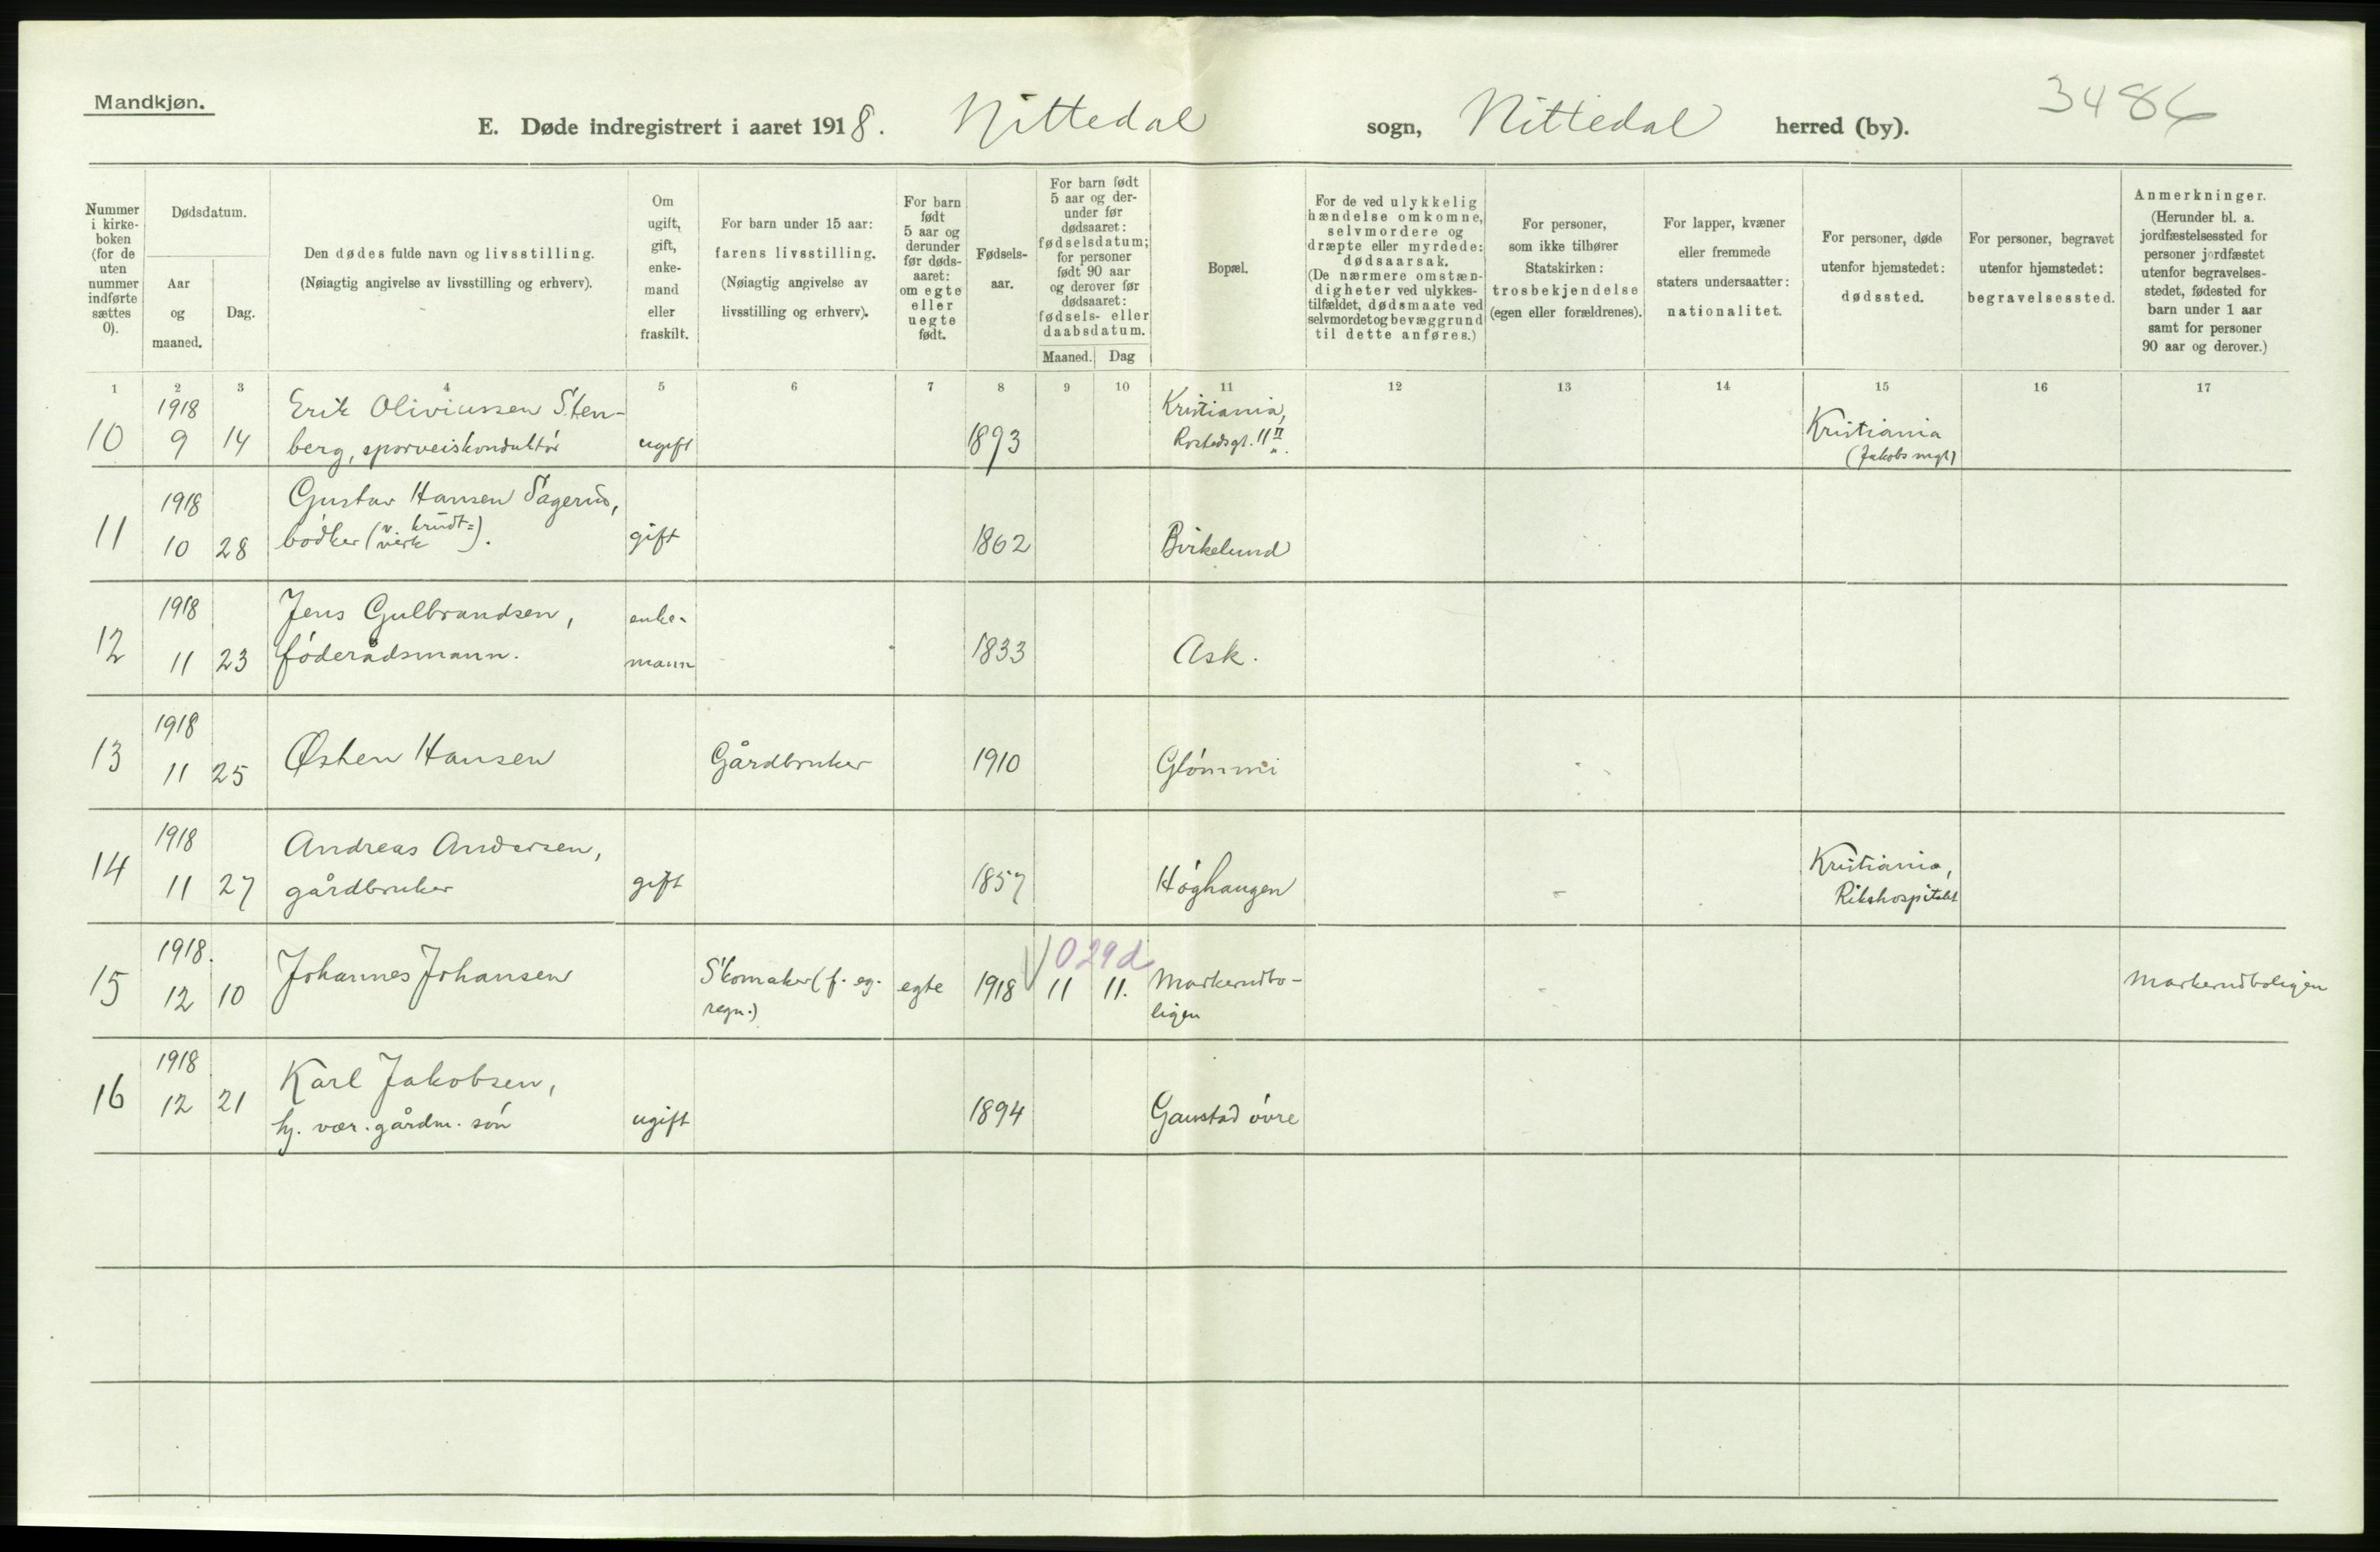 Mandkjøn.
E. Døde indregistrert i aaret 1918. Nittedal sogn, Nittedal herred (by).
3486
Nummer i kirke-boken (for de uten nummer indførte sættes 0).
Dødsdatum.
Aar og maaned.
Dag.
Den dødes fulde navn og livsstilling.
(Nøiagtig angivelse av livsstilling og erhverv).
Om ugift, gift, enke-mand eller fraskilt.
For barn under 15 aar:
farens livsstilling.
(Nøiagtig angivelse av
livsstilling og erhverv).
For barn født 5 aar og derunder før døds-aaret: om egte eller uegte født.
Fødsels-aar.
For barn født 5 aar og der-under før dødsaaret: fødselsdatum; for personer født 90 aar og derover før dødsaaret: fødsels- eller daabsdatum.
Maaned. Dag
Bopæl.
For de ved ulykkelig hændelse omkomne, selvmordere og dræpte eller myrdede: dødsaarsak.
(De nærmere omstæn-digheter ved ulykkes-tilfældet, dødsmaate ved selvmordet og bevæggrund til dette anføres.)
For personer, som ikke tilhører Statskirken: trosbekjendelse (egen eller forældrenes).
For lapper, kvæner eller fremmede staters undersaatter: nationalitet.
For personer, døde utenfor hjemstedet: dødssted.
For personer, begravet utenfor hjemstedet: begravelsessted.
Anmerkninger.
(Herunder bl. a. jordfæstelsessted for personer jordfæstet utenfor begravelses-stedet, fødested for barn under 1 aar samt for personer 90 aar og derover.)
1 2 3 4 5 6 7 8 9 10 11 12 13 14 15 16 17
1918 Erik Oliviussen Sten- Kristiania,
10 9 14 berg, sporveiskonduktór ugift 1893 11 II Kristiania
(Jakobs mgh)
1918 Gustav Hansen Sagerud,
11 10 28 bódker (v. krudt=verk). gift 1862 Birkelund
1918 Jens Gulbrandsen, enke-
12 11 23 fóderådsmann. mann 1833 Ask.
1918
13 11 25 Østen Hansen Gårdbruker 1910 Glómmi
1918 Andreas Andersen, Kristiania,
14 11 27 gårdbruker gift 1857 Hóghaugen Rikshospitalet
1918. 0 29 d
15 12 10 Johannes Johansen Skomaker (f. eg. egte 1918 11 11. Markerudbo- Markerudboligen
regn.) ligen
1918 Karl Jakobsen,
16 12 21 hj. vær. gårdm. són ugift 1894 Gaustad óvre